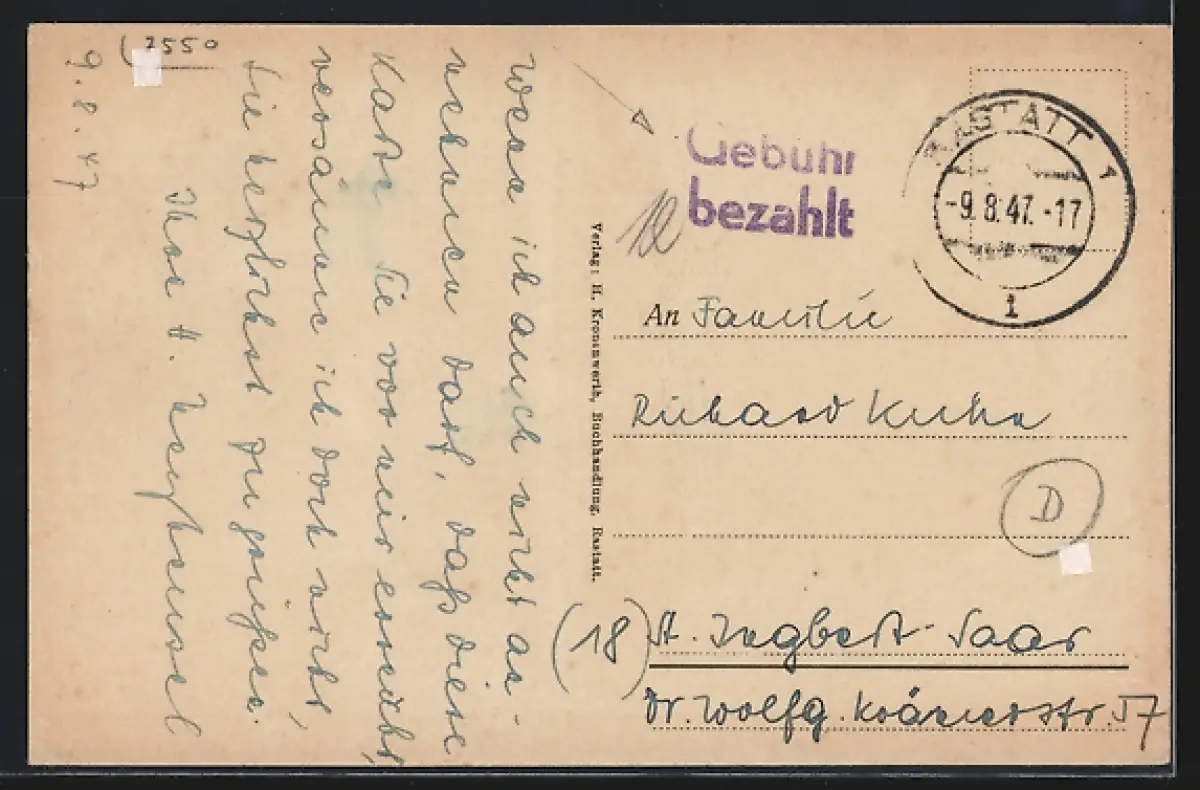 2550
9.8.47
Wenn ich auch nicht an-
nehmen darf, daß diese
Karte Sie vor mir erreicht,
versäume ich doch nicht,
Sie herzlichst zu grüßen.
Ihr H.
Verlag: H. Kronenwerth, Buchhandlung, Rastatt.
Gebühr
bezahlt
RASTATT 1
-9.8.47.-17
1
An Familie
Richard Kuhn
D
(18) St. Ingbert Saar
Dr. Wolfg. Krämerstr. 57